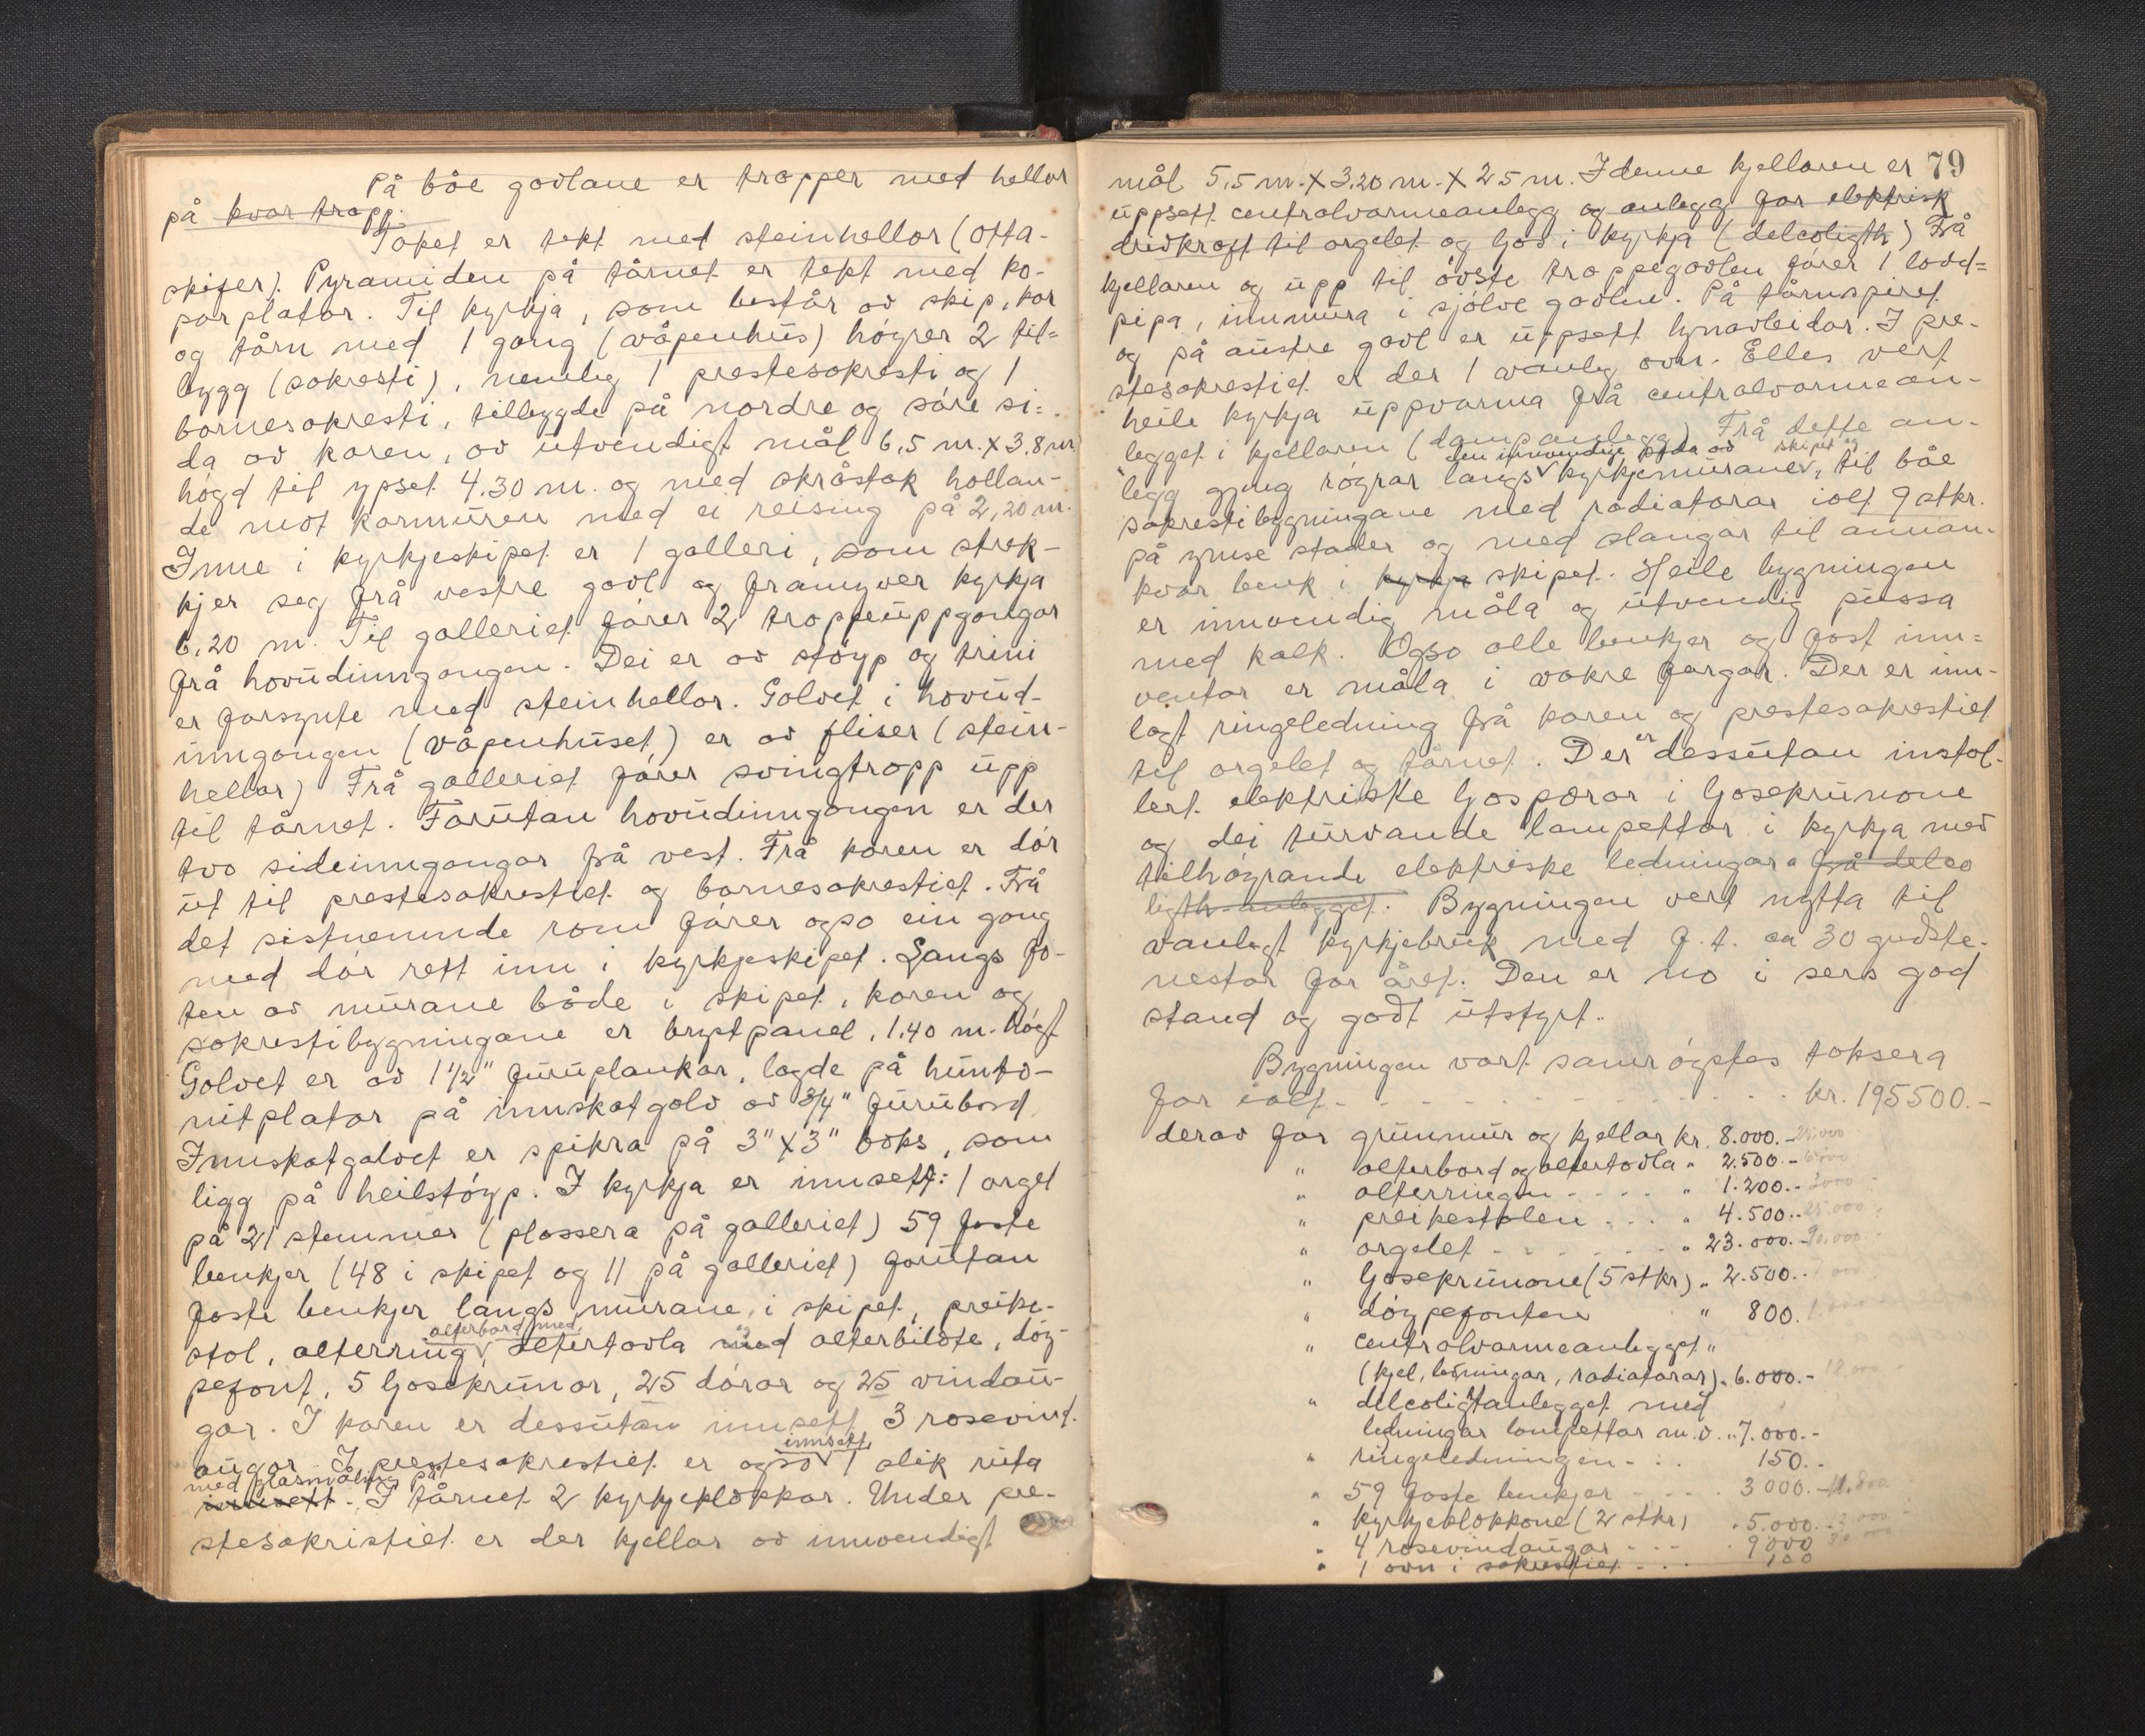 På båe gavlane er trapper med hellor
på kvar trapp.
Taket er tekt med steinhellor (Otta-
skifer). Pyramiden på tårnet er tekt med ko-
parplator. Til kyrkja, som består av skip, kor
og tårn med 1 gang (våpenhus) høyrer 2 til=
bygg (sakresti), nemleg 1 prestesakresti og 1
barnesakresti, tilbygde på nordre og søre si=
da av koren, av utvendigt mål 6,5 m. x 3,8 m
høgd til ypset 4.30 m. og med skråtak hallan-
de mot kormuren med ei reising på 2,20 m.
Inne i kyrkjeskipet er 1 galleri, som strek-
kjer seg frå vestre gavl og framyver kyrkja
6,20 m. Til galleriet fører 2 trappeuppgangar
frå hovudinngangen. Dei er av støyp og trini
er forsynte med steinhellor. Golvet i hovud-
inngangen (våpenhuset) er av fliser (stein-
hellar) Frå galleriet fører svingtrapp upp
til tårnet. Forutan hovudinngangen er der
tvo sideinngangar på vest. Frå koren er dør
ut til prestesakrestiet og barnesakrestiet. Frå
det sistnemnde rom fører ogso ein gang
med dør rett inn i kyrkjeskipet. Langs fo-
ten av murane både i skipet, koren og
sakrestibygningane er brystpanel, 1.40 m. høgt
Golvet er av 1½" furuplankar, lagde på hunto-
nitplator på innskotgolv av ¾" furubord.
Innskotgolvet er spikra på 3" x 3" boks, som
ligg på heilstøyp. I kyrkja er innsett: 1 orgel
på 21 stemmer (plassera på galleriet) 59 faste
benkjer (48 i skipet og 11 på galleriet) forutan
faste benkjer langs murane i skipet, preike-
alterbord med
stol, alterring, altertavla med alterbilæte, døy-
pefont, 5 ljosekrunor, 25 dører og 25 vindau-
gor. I koren er dessutan innsett 3 rosevind-
innsett
augor. I prestesakrestiet er ogso 1 slik ruta
med glasmåling på
innsett. I tårnet 2 kyrkjeklokkar. Under pre-
stesakristiet er der kjellar av innvendigt
79
mål 5,5 m. x 3.20 m. x 2.5 m. I denne kjellaren er
uppsett centralvarmeanlegg og anlegg for elektrisk
drivkraft til orgelet og ljos i kyrkja (delcoligth) Frå
kjellaren og upp til øvste trappegavlen fører 1 lodd=
pipa, innmura i sjølve gavlen. På tårnspiret
og på austre gavl er uppsett lynavleidar. I pre-
stesakrestiet er der 1 vanleg omn. Elles vert
heile kyrkja uppvarma frå centralvarmean-
legget i kjellaren (dampanlegg) Frå dette an-
den innvendige sida av skipet og
legg gjeng røyrar langs kyrkjemurane, til båe
sakrestibygningane med radiatorar ialt 9 stkr.
på ymse stader og med slangar til annan-
kvar benk i kyrkja skipet. Heile bygningen
er innvendig måla og utvendig pussa
med kalk. Ogso alle benkjer og fast inn=
ventar er måla i vakre fargar. Der er inn-
lagt ringeledning frå koren og prestesakrestiet
til orgelet og tårnet. Der er dessutan instal-
lert elektriske ljosperor i ljosekrunone
og dei turvande lampettar i kyrkja med
tilhøyrande elektriske ledningar frå delco
ligth-anlegget. Bygningen vert nytta til
vanlegt kyrkjebruk med f.t. ca 30 gudste-
nestor for året. Den er no i sers god
stand og godt utstyrt.
Bygningen vart samrøystes taksera
for ialt - - - - - kr. 195500.-
derav for grunnmur og kjellar kr. 8.000.-
" alterbord og altertavla " 2.500.-
" alterringen - - - - " 1.200.-
" preikestolen - - - " 4.500.-
" orgelet - - - - - " 23.000.-
" ljosekrunone (5 stkr) " 2.500.-
" døypefonten " 800.
" centralvarmeanlegget "
(kjel, ledningar, radiatorar) " 6.000.-
" delcoligtanlegget med
ledningar lampettar m.v. " 7.000.-
" ringeledningen - - 150.-
" 59 faste benkjer - - - - 3000.- 11.800
" kyrkjeklokkone (2 stkr) " 5.000.-
" 4 rosevindaugar - - - 9000
" 1 ovn i sakrestiet - - - 100